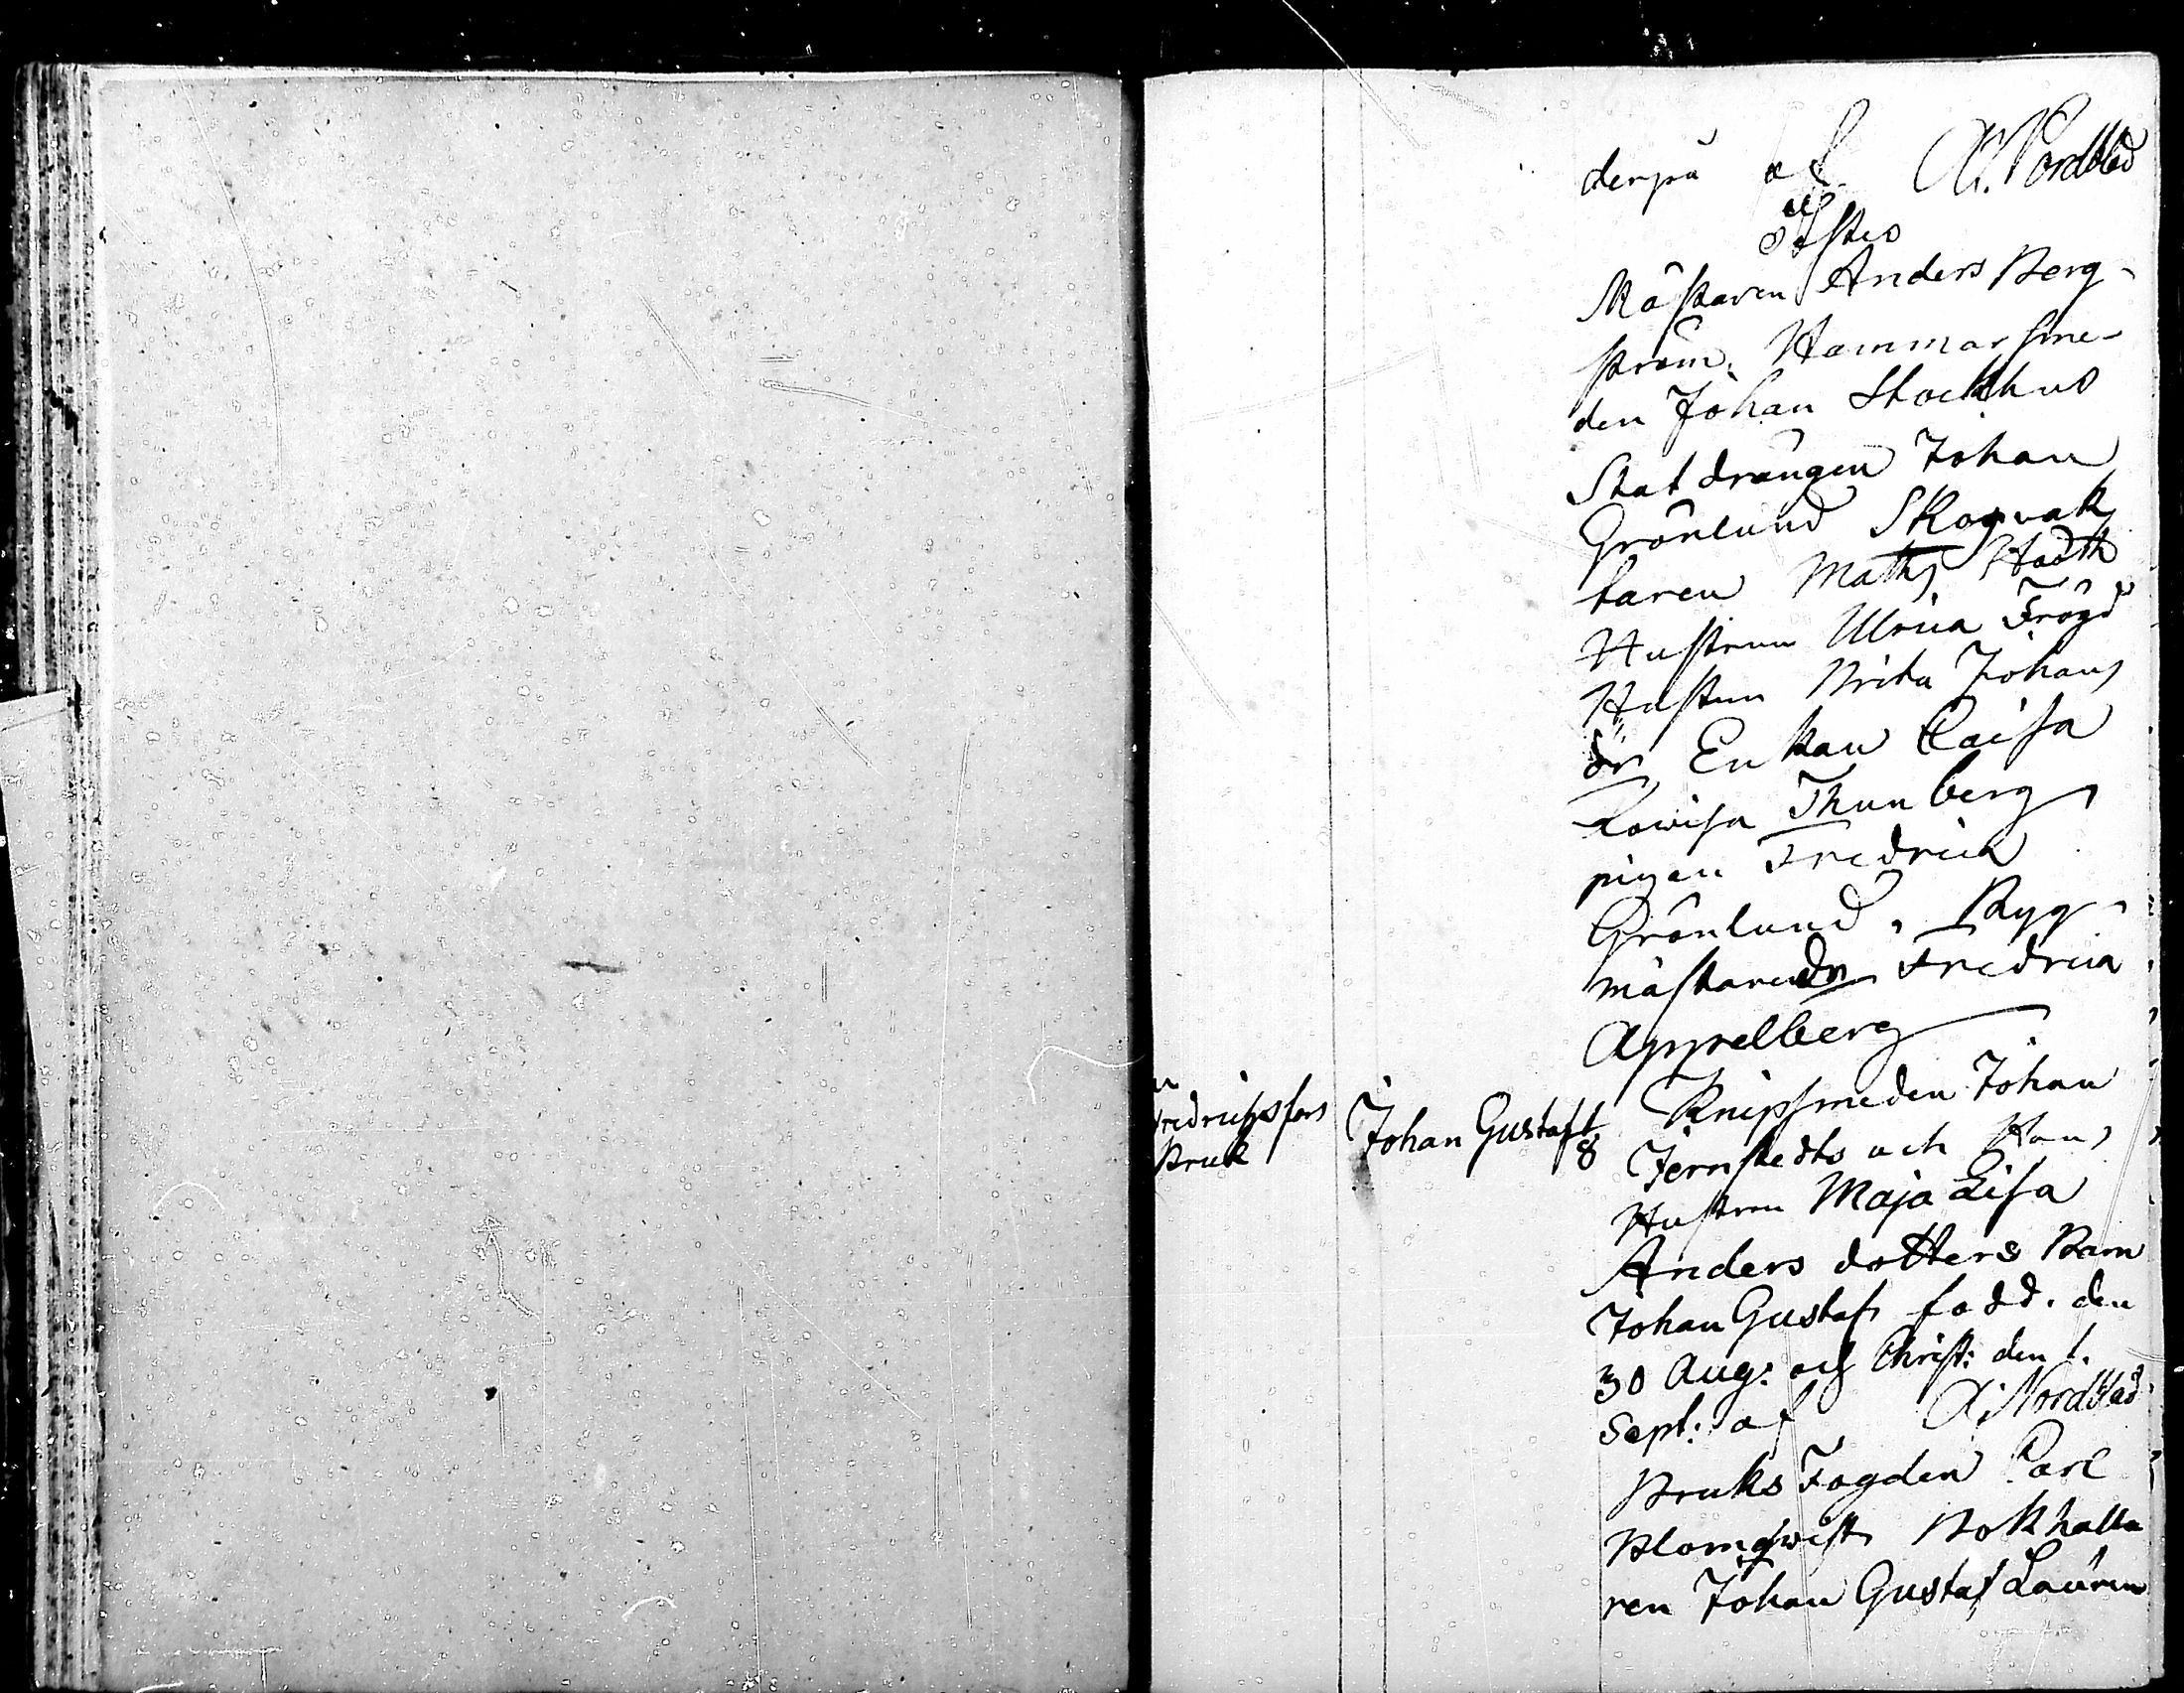 derpå af A. Nordblad
Testes
Mästaren Anders Berg-
ström, Hammarsme-
den Johan Stockhus
Stat drängen Johan
Grönlund Skogvak
taren Maths Hadth
Hustrun Ulrica Frögd
Hustrun Brita Johans
dr, Enkan Caisa
Lowisa Thunberg
pigan Fredrica
Grönlund, Byg-
mästaredr Fredrica
Appelberg
Fredricsfors
Bruk
Johan Gustaf
8
Knipsmeden Johan
Jernstedts och Hans
Hustru Maja Lisa
Anders dotters Barn
Johan Gustaf född. den
30 Aug: och Christ: den 1.
Sept: af A. Nordblad
Bruks Fogden Carl
Blomqwist Bokhålla
ren Johan Gustaf Lauren